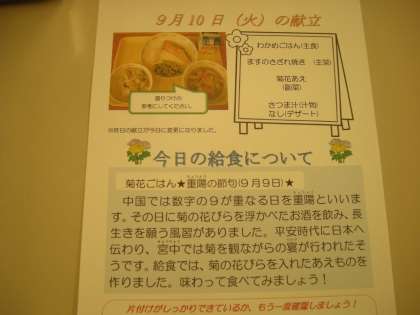 9月10日（火）の献立
わかめごはん(主食)
ますのさざれ焼き （主菜）
菊花あえ
(副菜)
さつま汁(汁物)
なし(デザート)
盛りつけの
参考にしてください。
※昨日の献立が今日に変更になりました。
今日の給食について
菊花ごはん★重陽の節句(9月9日)★
ちょうよう
中国では数字の９が重なる日を重陽といいま
す。その日に菊の花びらを浮かべたお酒を飲み、長
生きを願う風習がありました。平安時代に日本へ
伝わり、宮中では菊を観ながらの宴が行われたそ
うです。給食では、菊の花びらを入れたあえものを
作りました。味わって食べてみましょう！
片付けがしっかりできているか、もう一度確認しましょう！